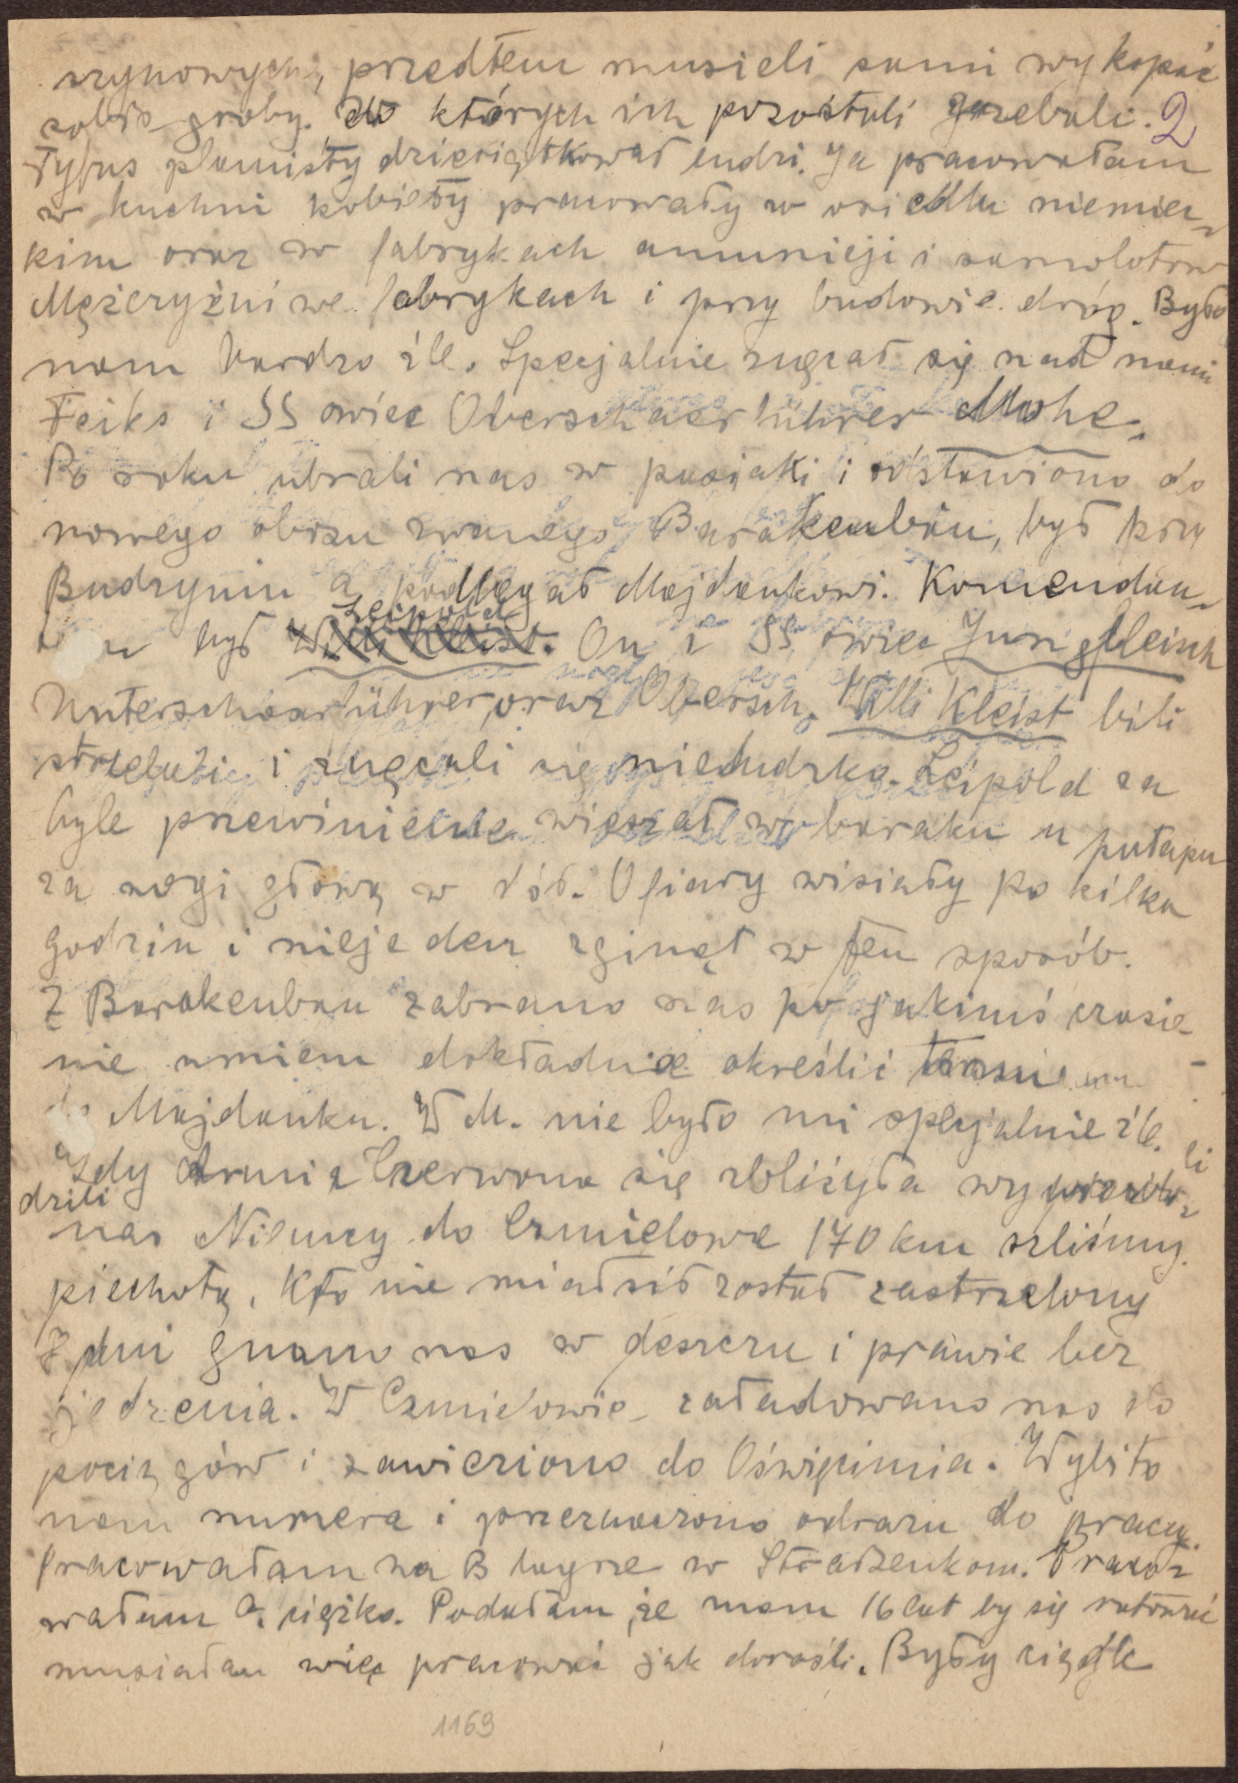 szynowych, przedtem musieli sami wykopać
sobie groby. do których ich pozostali grzebali. 2
Tyfus plamisty dziesiątkował ludzi. Ja pracowałam
w kuchni kobiety pracowały w osiedlu niemiec-
kim oraz w fabrykach amunicji i samolotów
Mężczyźni we fabrykach i przy budowie dróg. Było
nam bardzo źle. Specjalnie znęcał się nad nami
Feiks i SS owiec Oberscharführer Mohe.
Po roku ubrali nas w pasiaki i odstawiono do
nowego obozu zwanego Barakenbau, był przy
Budzyniu a podlegał Majdankowi. Komendan-
był Leipold. On i SS owiec
Unterscharführer, oraz Obersch. Willi Kleist bili
i znęcali się nieludzko. Leipold za
byle przewinienie wieszał w baraku u pułapu
za nogi głową w dół. Ofiary wisiały po kilka
godzin i niejeden zginął w ten sposób.
Z Barakenbau zabrano nas po jakimś czasie
nie umiem dokładnie określić
do Majdanku. W M. nie było mi specjalnie źle.
gdy Armia Czerwona się zbliżyła
dzili
nas Niemcy do Ćmielowa 170 km szliśmy
piechotą. Kto nie miał sił został zastrzelony
7 dni gnano nas w deszczu i prawie bez
jedzenia. W Ćmielowie załadowano nas do
pociągów i zawieziono do Oświęcimia. Wybito
nam numera i przeznaczono odrazu do pracy.
Pracowałam na B lagrze w Straßenkom. Praco-
wałam b. ciężko. Podałam, że mam 16 lat by się ratować
musiałam więc pracować jak dorośli. Były ciągłe
1169